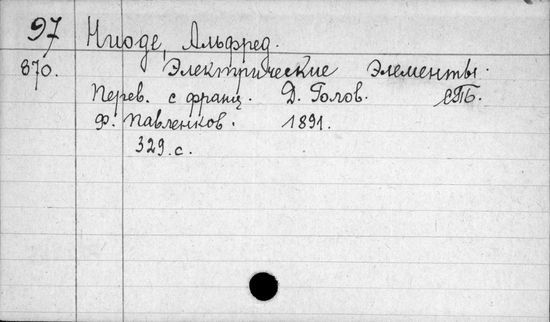 97 Ниоде, Альфред.
870. Электрические Элементы.
Перев. с франц. Д. Голов. СПБ.
Ф. Павленков. 1891.
329. с.